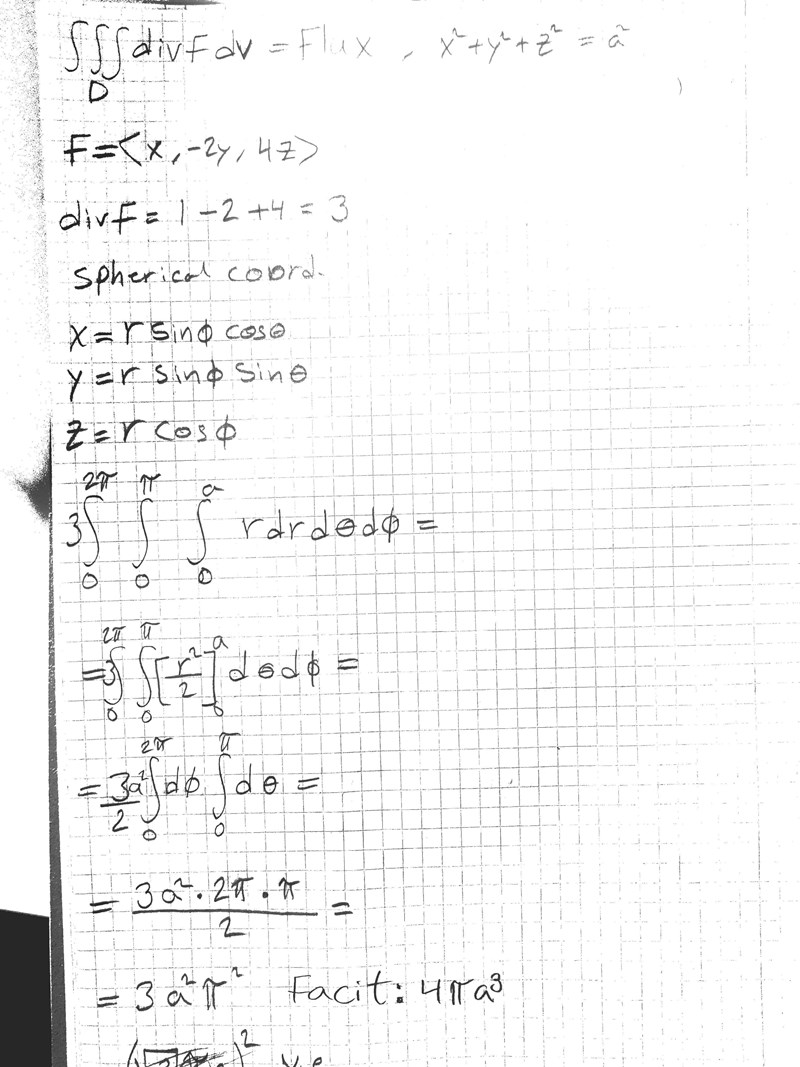 ∫∫∫ div F dv = Flux , x² + y² + z² = a²
D
F = <x, -2y, 4z>
div F = 1 - 2 + 4 = 3
spherical coord.
x = r sinϕ cosθ
y = r sinϕ sinθ
z = r cosϕ
3 ∫₀^2π ∫₀^π ∫₀^a r dr dθ dϕ =
= 3 ∫₀^2π ∫₀^π [r²/2]₀^a dθ dϕ =
= 3a²/2 ∫₀^2π dϕ ∫₀^π dθ =
= 3a² · 2π · π / 2 =
= 3a²π² Facit: 4πa³